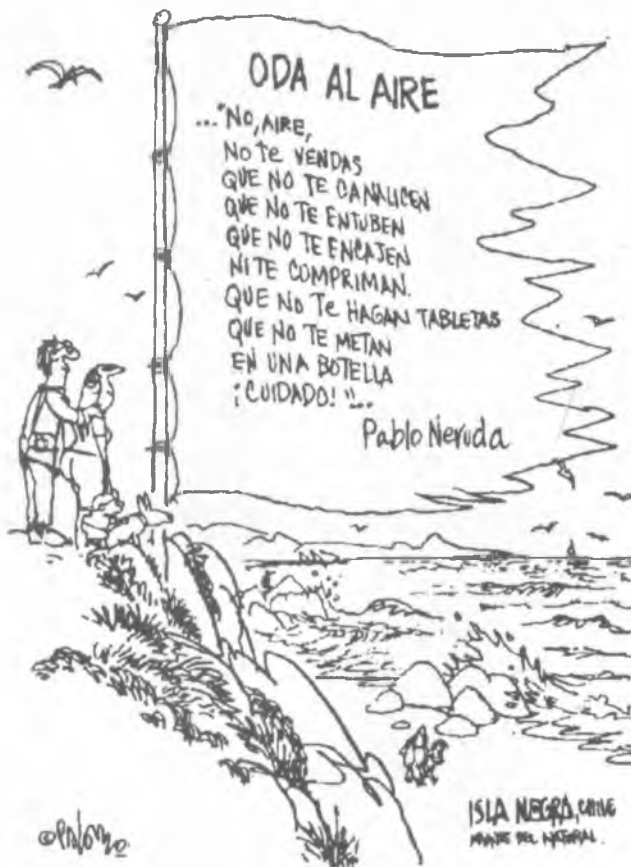 ODA AL AIRE
..."NO, AIRE,
NO TE VENDAS
QUE NO TE CANALICEN
QUE NO TE ENTUBEN
QUE NO TE ENCAJEN
NI TE COMPRIMAN.
QUE NO TE HAGAN TABLETAS
QUE NO TE METAN
EN UNA BOTELLA
¡CUIDADO!"...
Pablo Neruda
ISLA NEGRA, CHILE
DEL NATURAL.
©PALOMO